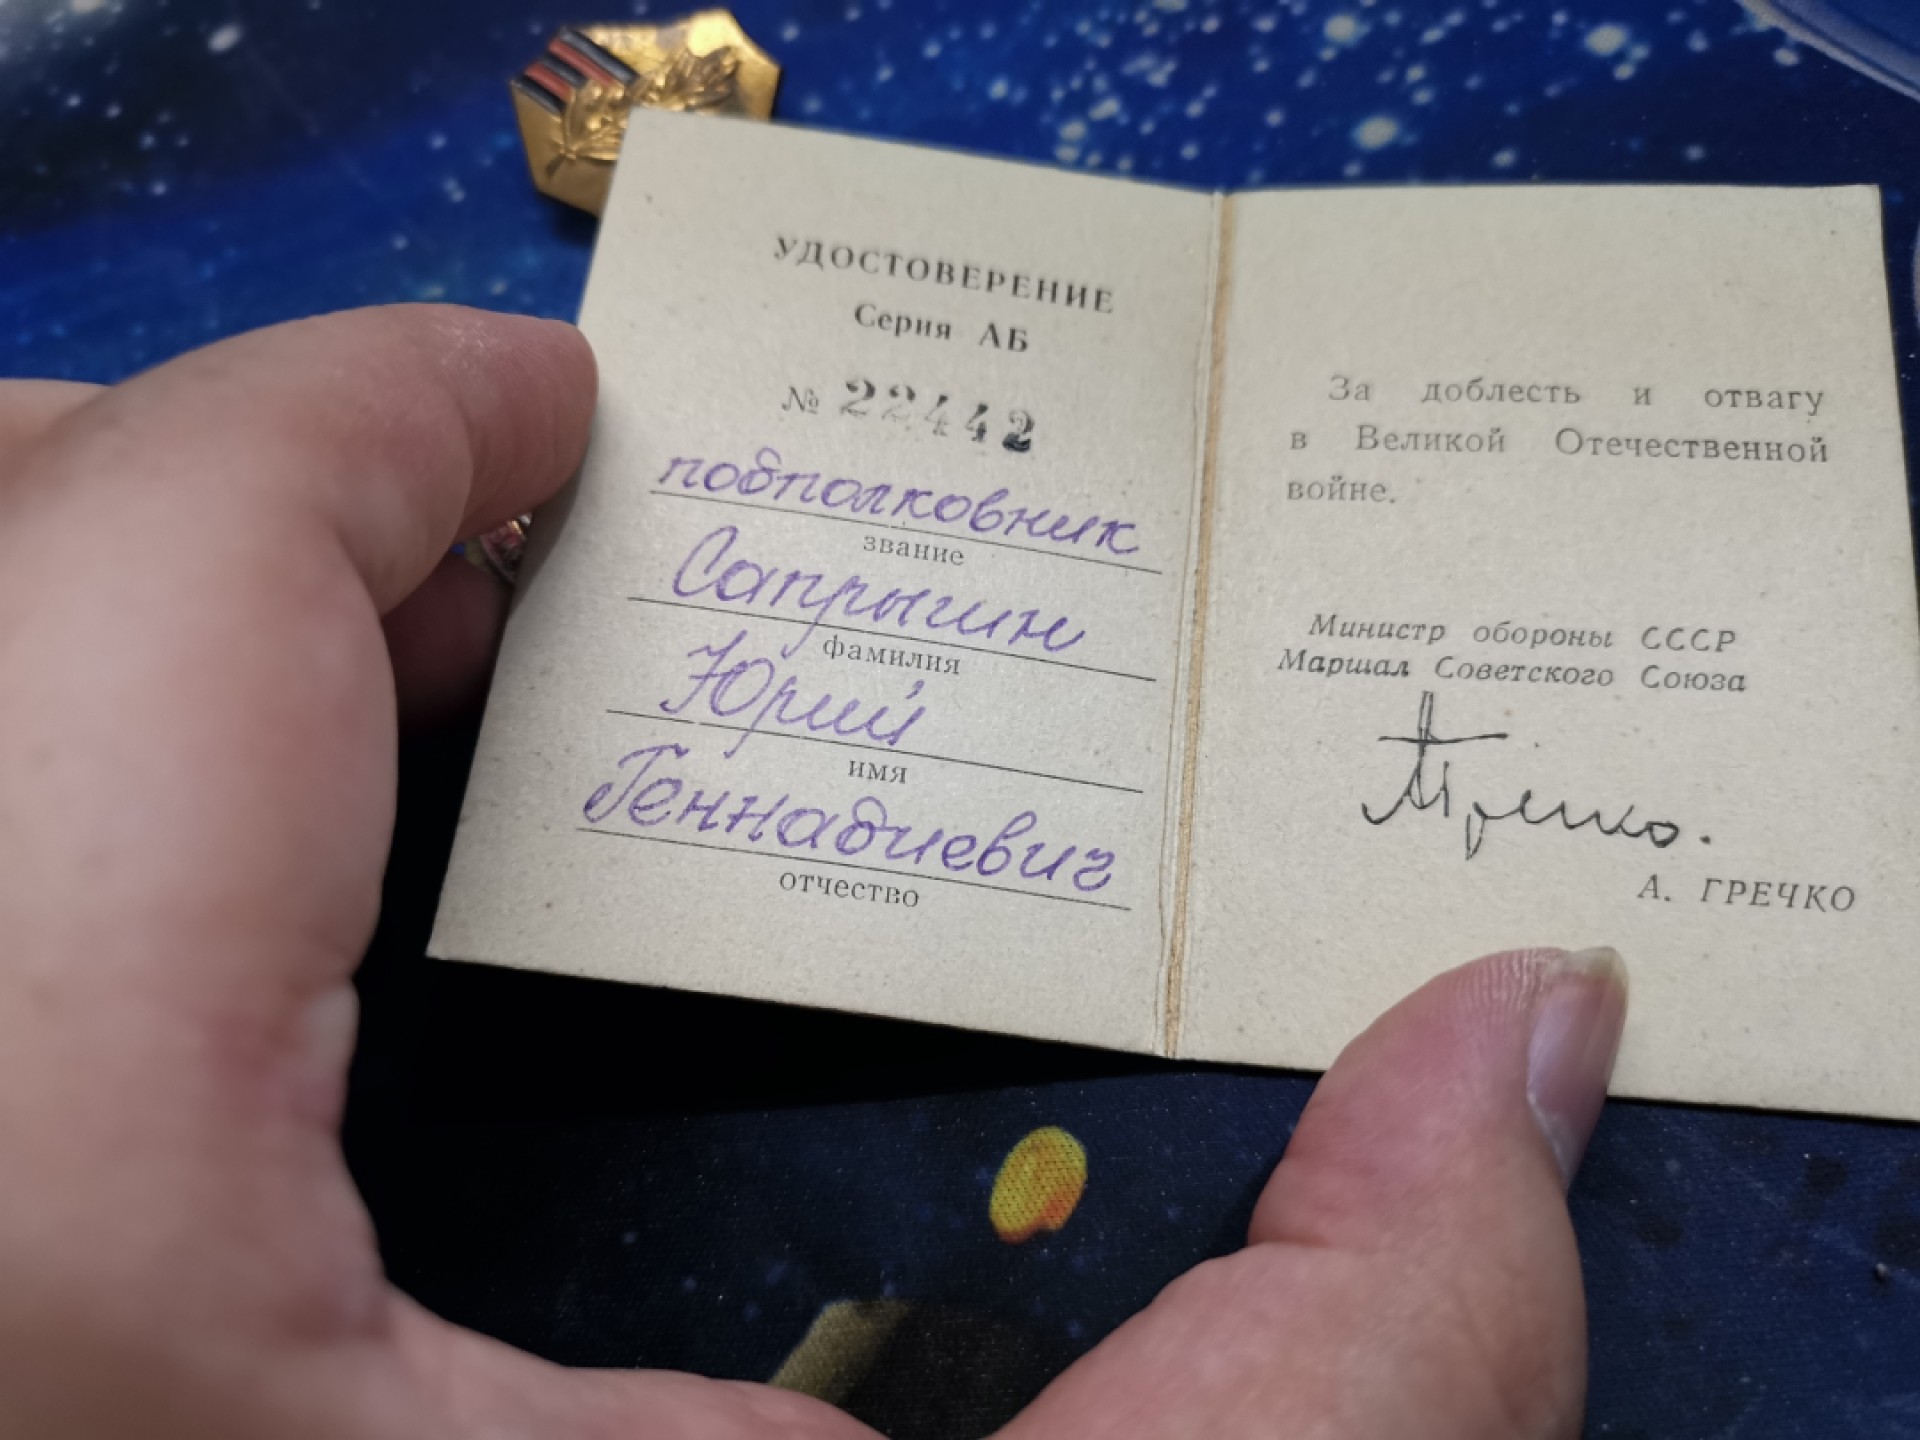 УДОСТОВЕРЕНИЕ
Серия АБ
№ 22442
подполковник
звание
Сапрыгин
фамилия
Юрий
имя
Геннадиевич
отчество
За доблесть и отвагу
в Великой Отечественной
войне.
Министр обороны СССР
Маршал Советского Союза
АГречко.
А. ГРЕЧКО